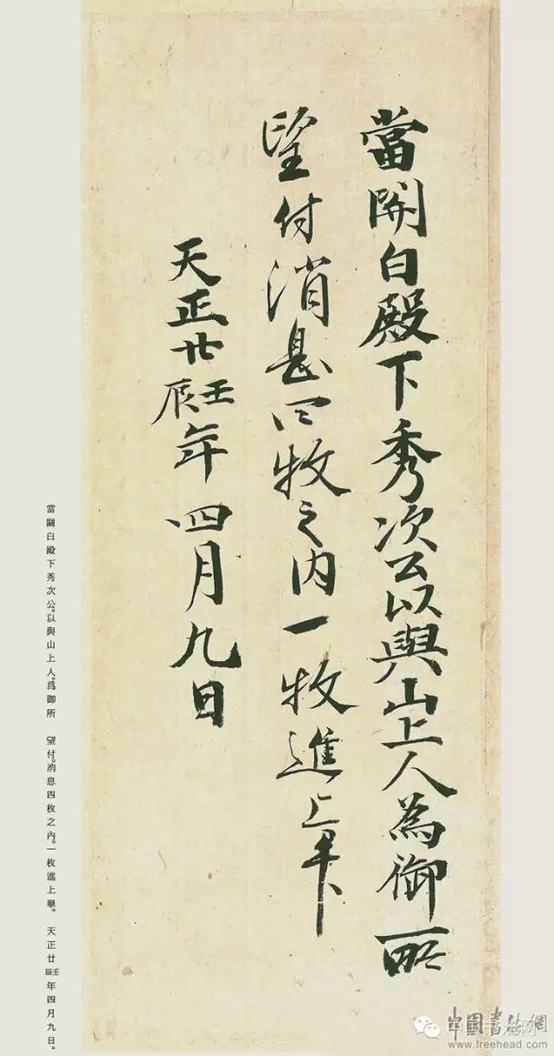 當關白殿下秀次公以與山上人為御所
望付消息四枚之内一枚進上畢
天正廿壬辰年四月九日
當關白殿下秀次公。以與山上人。爲御所　望付。消息四枚之内。一枚進上畢。　天正廿壬辰年四月九日。
中國書法網
www.freehead.com